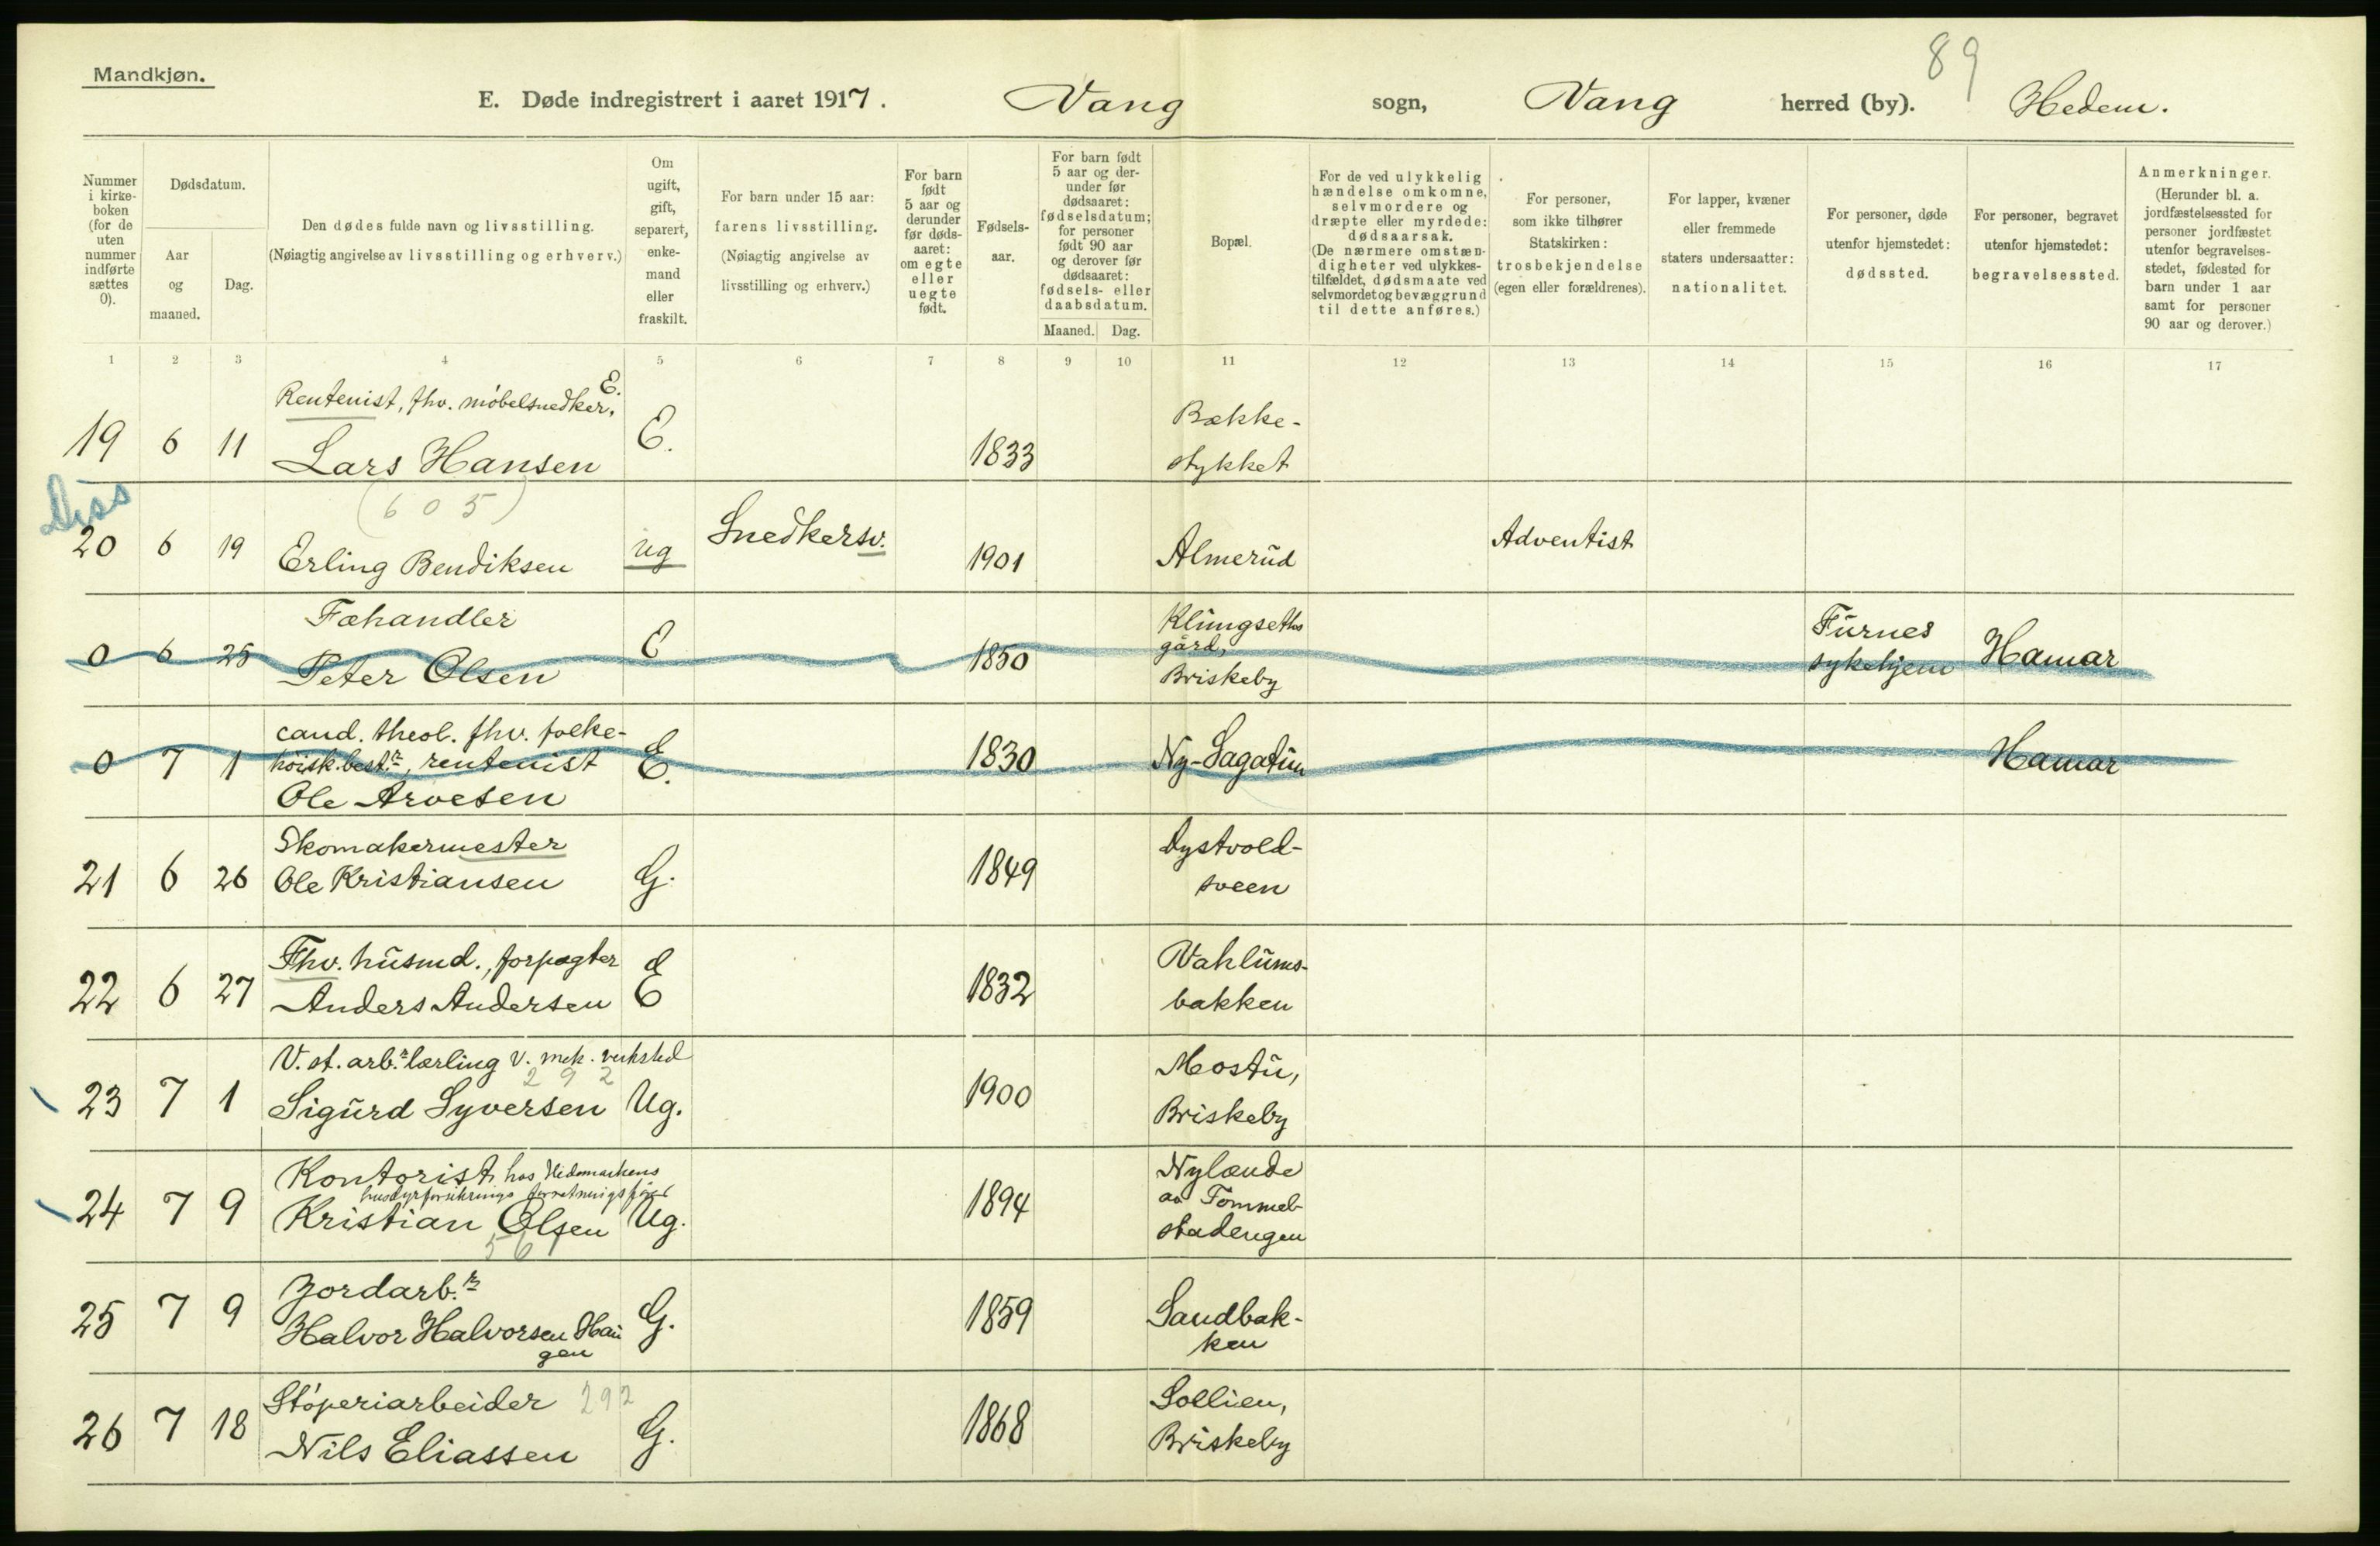 Mandkjøn.
89
E. Døde indregistrert i aaret 1917. Vang sogn, Vang herred (by). Hedem.
Nummer i kirke-boken (for de uten nummer indførte sættes 0).
Dødsdatum.
Aar og maaned.
Dag.
Den dødes fulde navn og livsstilling.
(Nøiagtig angivelse av livsstilling og erhverv.)
Om ugift, gift, separert, enke-mand eller fraskilt.
For barn under 15 aar: farens livsstilling.
(Nøiagtig angivelse av livsstilling og erhverv.)
For barn født 5 aar og derunder før døds-aaret: om egte eller uegte født.
Fødsels-aar.
For barn født 5 aar og der-under før dødsaaret: fødselsdatum; for personer født 90 aar og derover før dødsaaret: fødsels- eller daabsdatum.
Maaned. Dag.
Bopæl.
For de ved ulykkelig hændelse omkomne, selvmordere og dræpte eller myrdede: dødsaarsak.
(De nærmere omstæn-digheter ved ulykkes-tilfældet, dødsmaate ved selvmordet og bevæggrund til dette anføres.)
For personer, som ikke tilhører Statskirken: trosbekjendelse (egen eller forældrenes).
For lapper, kvæner eller fremmede staters undersaatter: nationalitet.
For personer, døde utenfor hjemstedet: dødssted.
For personer, begravet utenfor hjemstedet: begravelsessted.
Anmerkninger.
(Herunder bl. a. jordfæstelsessted for personer jordfæstet utenfor begravelses-stedet, fødested for barn under 1 aar samt for personer 90 aar og derover.)
1 2 3 4 5 6 7 8 9 10 11 12 13 14 15 16 17
Rentenist, fhv. møbelsnedker, E.
19 6 11 Lars Hansen E. 1833 Bække-
stykket
Diss
(605)
20 6 19 Erling Bendiksen ug Snedkersv. 1901 Almerud Adventist
Fæhandler
0 6 25 Peter Olsen E 1850 Klungseths
gård,
Briskeby Furnes
sykehjem Hamar
cand. theol. fhv. folke-
0 7 1 høisk.best.r, rentenist E. 1830 Ny-Sagatun Hamar
Ole Arvesen
Skomakermester
21 6 26 Ole Kristiansen G. 1849 Dystvold-
sveen
Fhv. husmd., forpagter
22 6 27 Anders Andersen E 1832 Vahlums-
bakken
V. st. arb.r lærling v. mek. verksted
292
23 7 1 Sigurd Syversen Ug. 1900 Mostu,
Briskeby
Kontorist hos Hedemarkens
24 7 9 Kristian Olsen Ug. 1894 Nylænde
av Tommel-
stadengen
561
Jordarb.r
25 7 9 Halvor Halvorsen Hau
gen G. 1859 Sandbak-
ken
Støperiarbeider 292
26 7 18 Nils Eliassen G. 1868 Sollien,
Briskeby